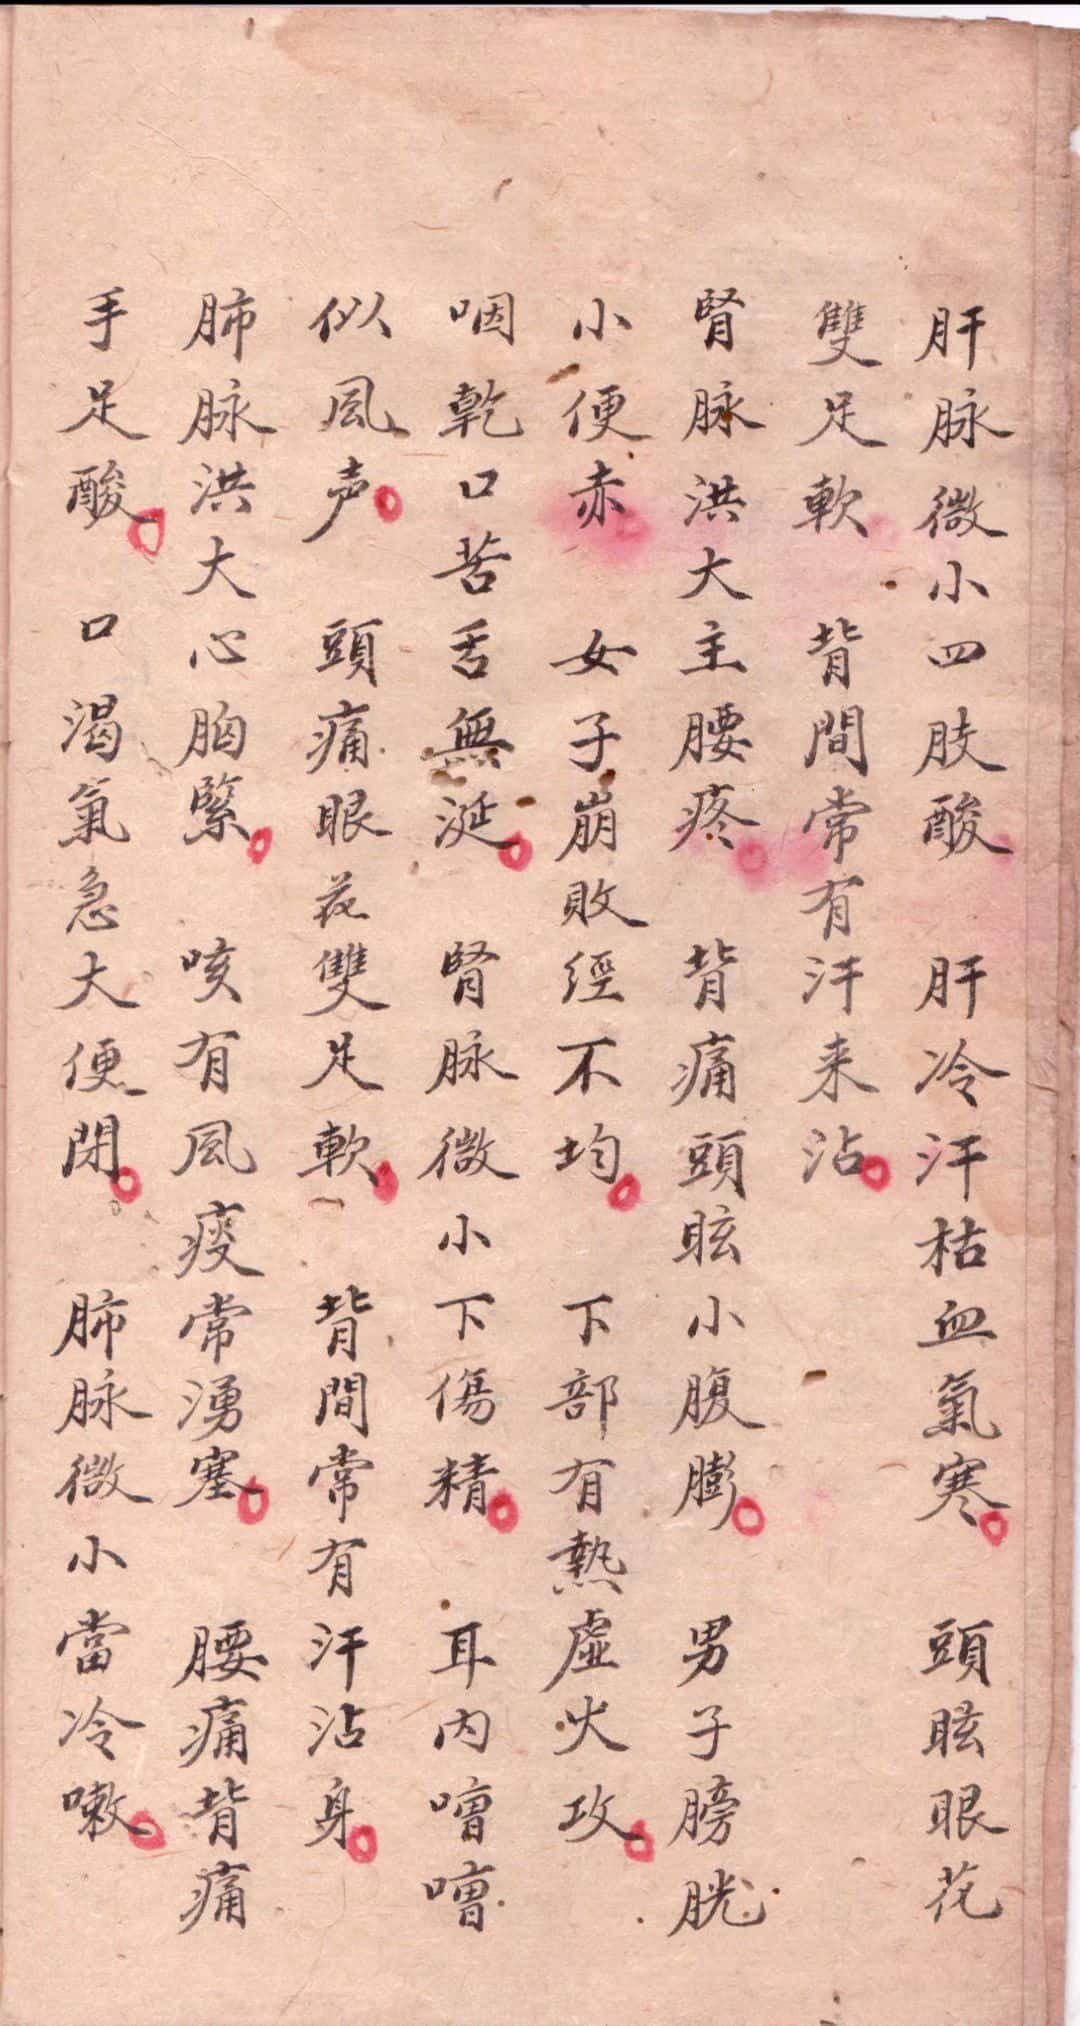 肝脉微小四肢酸　肝冷汗枯血氣寒　頭眩眼花
雙足軟　背間常有汗来沾
腎脉洪大主腰疼　背痛頭眩小腹膨　男子膀胱
小便赤　女子崩敗經不均　下部有熱虛火攻
咽乾口苦舌無涎　腎脉微小下傷精　耳內嘈嘈
似風声　頭痛眼花雙足軟　背間常有汗沾身
肺脉洪大心胸緊　咳有風痰常湧塞　腰痛背痛
手足酸　口渴氣急大便閉　肺脉微小當冷嗽